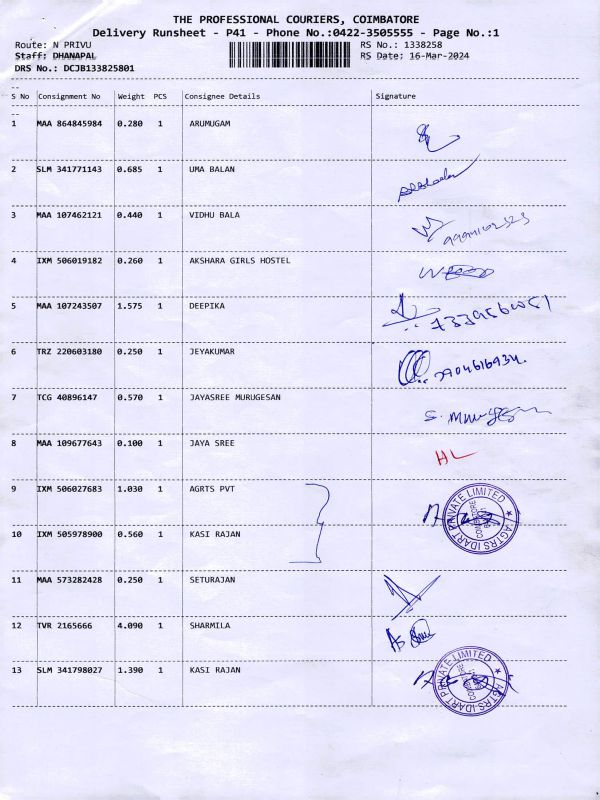 THE PROFESSIONAL COURIERS, COIMBATORE
Delivery Runsheet - P41 - Phone No.:0422-3505555 - Page No.:1
Route: N PRIVU RS No.: 1338258
Staff: DHANAPAL RS Date: 16-Mar-2024
DRS No.: DCJB133825801
S No Consignment No Weight PCS Consignee Details Signature
1 MAA 864845984 0.280 1 ARUMUGAM
2 SLM 341771143 0.685 1 UMA BALAN
3 MAA 107462121 0.440 1 VIDHU BALA
4 IXM 506019182 0.260 1 AKSHARA GIRLS HOSTEL
5 MAA 107243507 1.575 1 DEEPIKA
6 TRZ 220603180 0.250 1 JEYAKUMAR
7 TCG 40896147 0.570 1 JAYASREE MURUGESAN
8 MAA 109677643 0.100 1 JAYA SREE HL
9 IXM 506027683 1.030 1 AGRTS PVT
AGTRS IDART PRIVATE LIMITED
10 IXM 505978900 0.560 1 KASI RAJAN
11 MAA 573282428 0.250 1 SETURAJAN
12 TVR 2165666 4.090 1 SHARMILA
13 SLM 341798027 1.390 1 KASI RAJAN
AGTRS IDART PRIVATE LIMITED